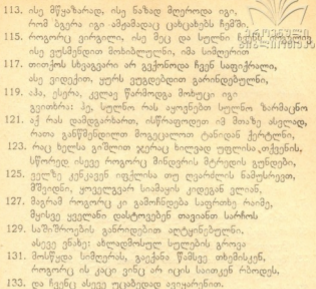 113. ისე მწყაზარად, ისე ნაზად მღეროდა იგი,
რომ ბგერა იგი ამჟამადაც ცახცახებს ჩემში.
115. როგორც ვირგილი, ისე მეც და სულნი
ისე ვუსმენდით მოხიბლულნი, იმა სიმღერით
117. თითქოს სხვაგვარი არ გვქონოდა ჩვენ საფიქრალი,
ასე ვიდექით, ყურს ვუგდებდით გარინდებულნი,
119. აჰა, ესერა, კვლავ წარმოდგა მოხუცი იგი
გვითხრა: ჰე, სულნო რას აყოვნებთ სულნო ზარმაცნო
121. აქ რას დამდგარხართ, ისწრაფოდეთ იმ მთაზე ასვლად,
რათა განწმენდილთ მოგეცალოთ ტანიდან ქერტლნი,
123. რაც ხელსა გიშლით ჯერაც ხილვად უფლისა თქვენის,
სწორედ ისევე როგორც მინდვრის მტრედის გუნდები,
125. ველზე კენკავენ იფქლისა თუ ღვარძლის ნამუსრევთ,
მშვიდნი, ყოველგვარ სიამაყის კიდეგან ვლიან,
127. მაგრამ როგორც კი გამოჩნდება საფრთხე რაიმე,
მყისვე ყველანი დასტოვებენ თავიანთ სარჩოს
129. საშიშროების განრიდებით აღტყინებულნი.
ასევე ვნახე: ახლადმოსულ სულების გროვა
131. მოსწყდა სიმღერას, გაექანა წამსვე თხემისკენ,
როგორც ის კაცი ვინც არ იცის საითკენ რბოდეს,
133. და ჩვენც ასევე უცაბედად ავიყარენით.